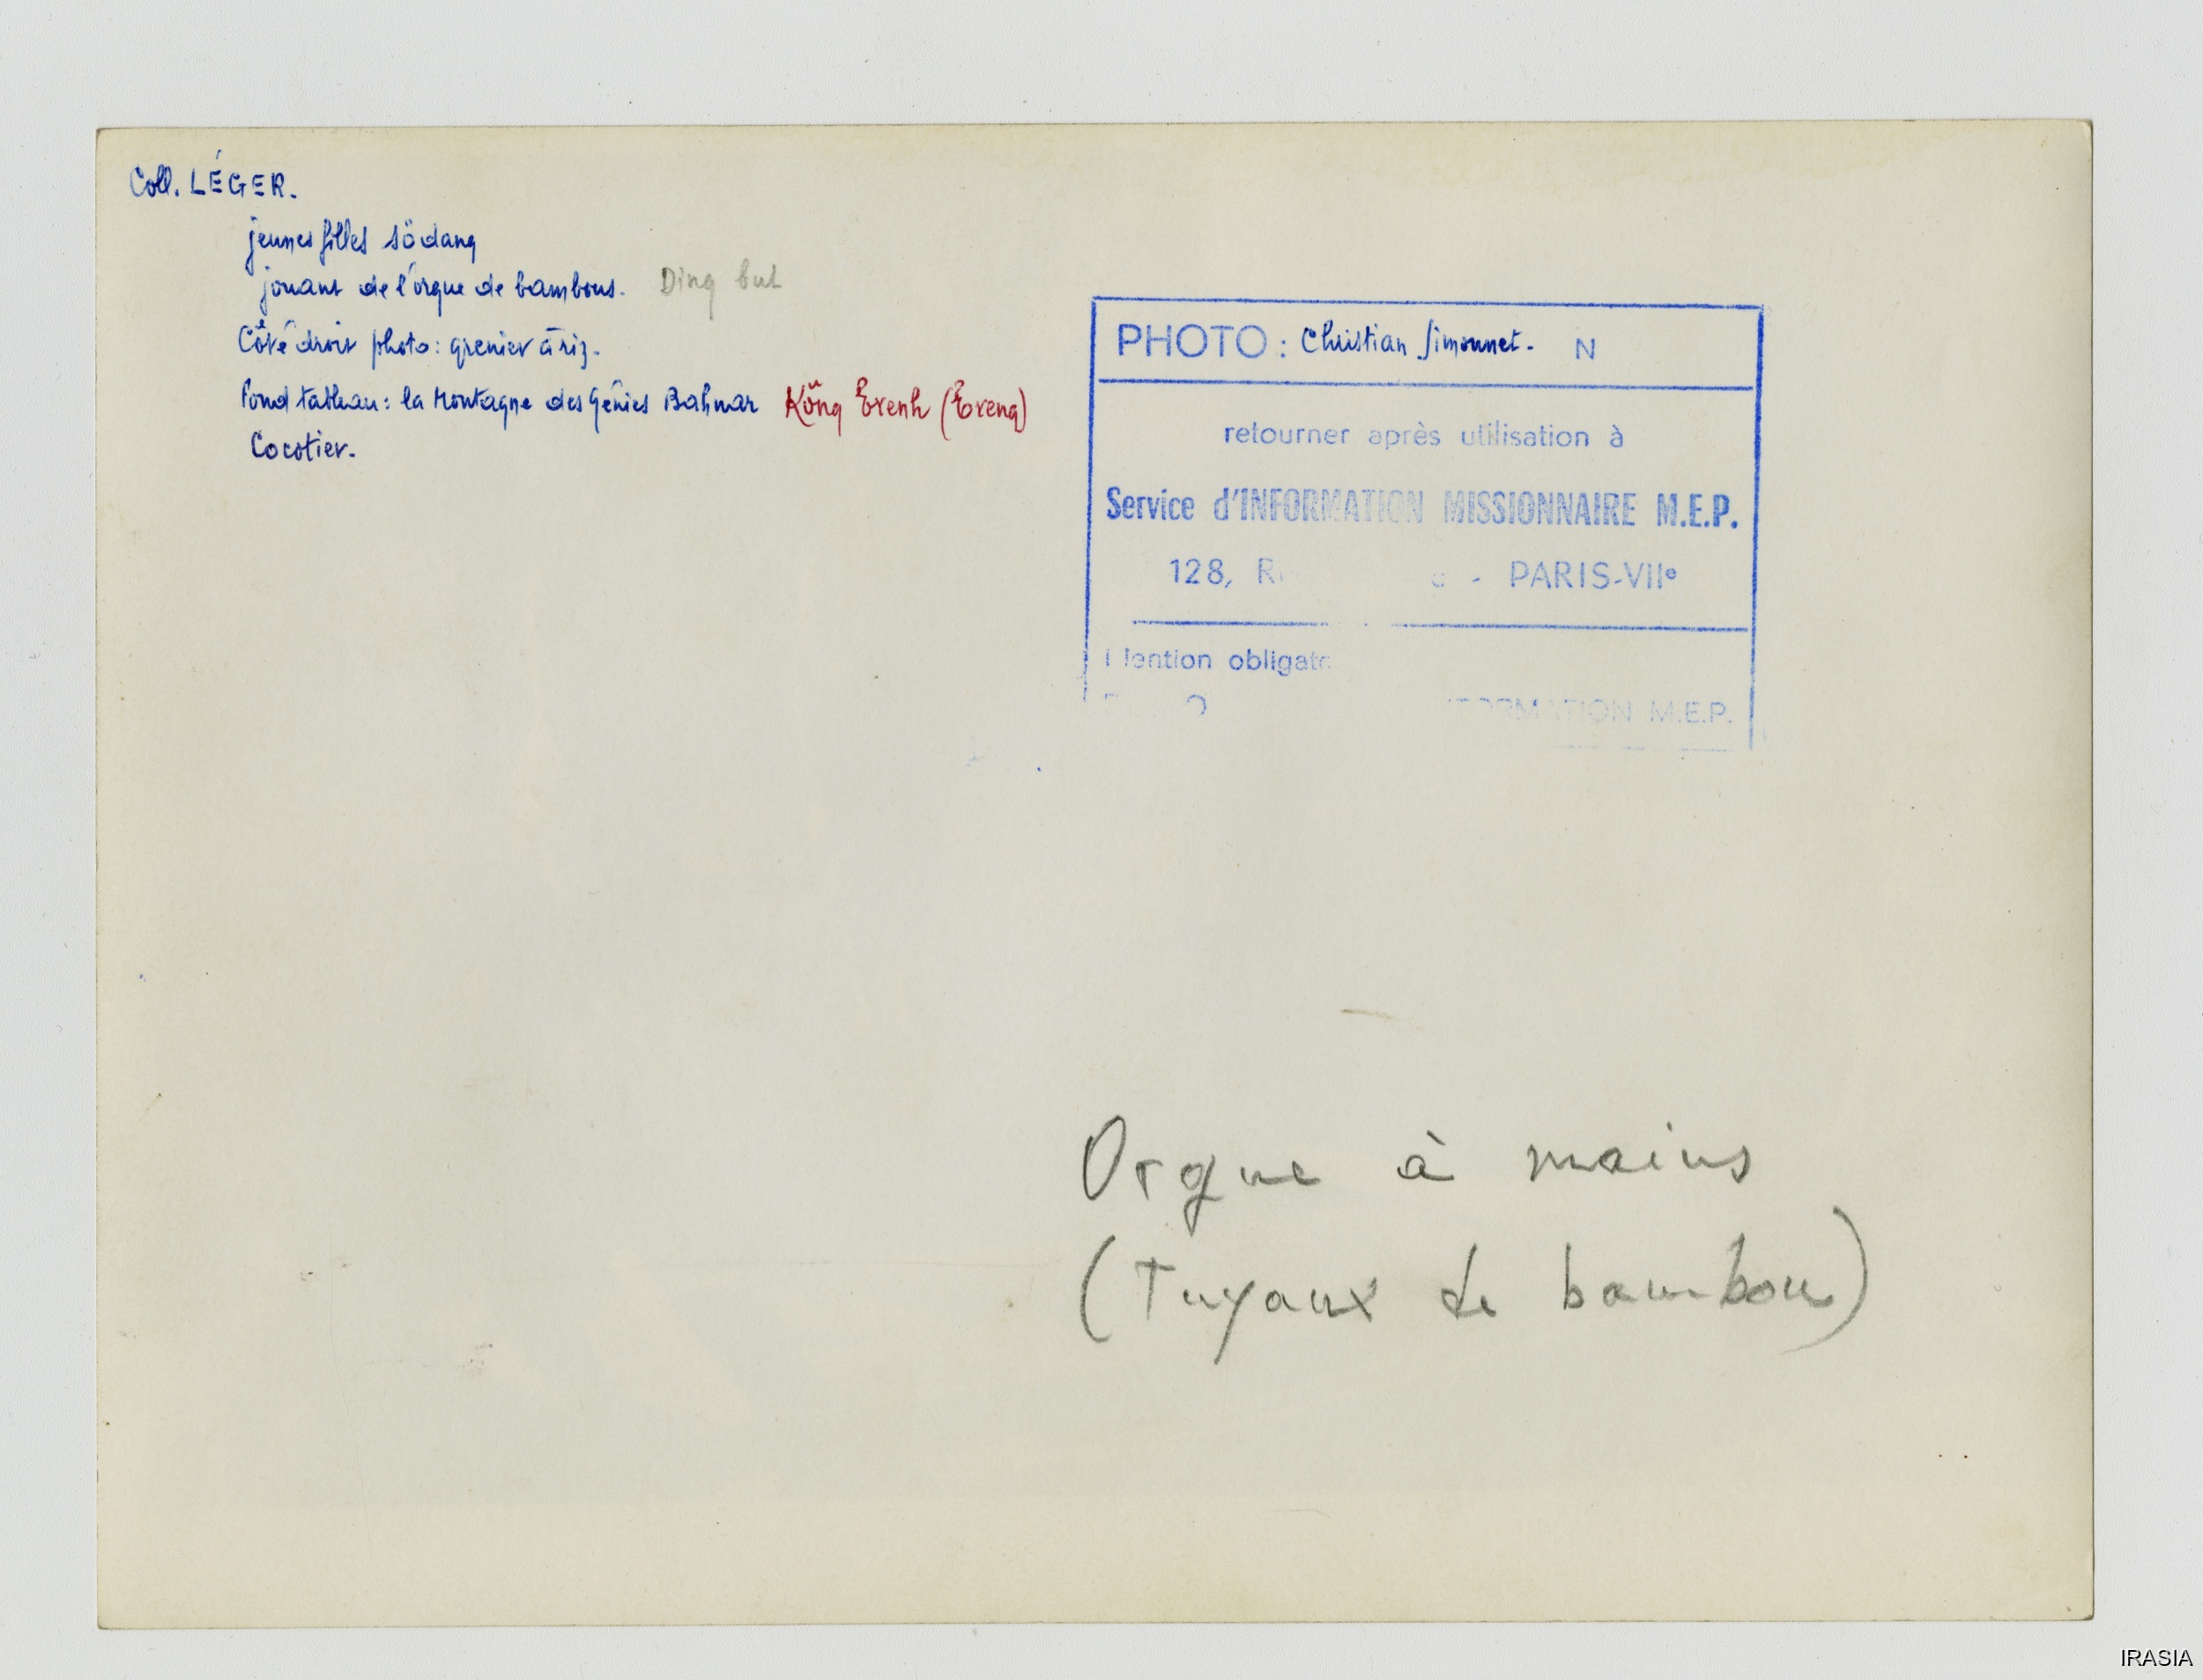 Coll. LÉGER.
jeunes filles södang
jouant de l'orgue de bambous. Ding but
Côté droit photo: grenier à riz.
Fond tableau: la Montagne des Génies Bahnar Köng Ereng (Ereng)
Cocotier.
PHOTO : Christian Simonnet. N
retourner après utilisation à
Service d'INFORMATION MISSIONNAIRE M.E.P.
128, - PARIS-VIIe
Mention
M.E.P.
Orgue à mains
(Tuyaux de bambou)
IRASIA